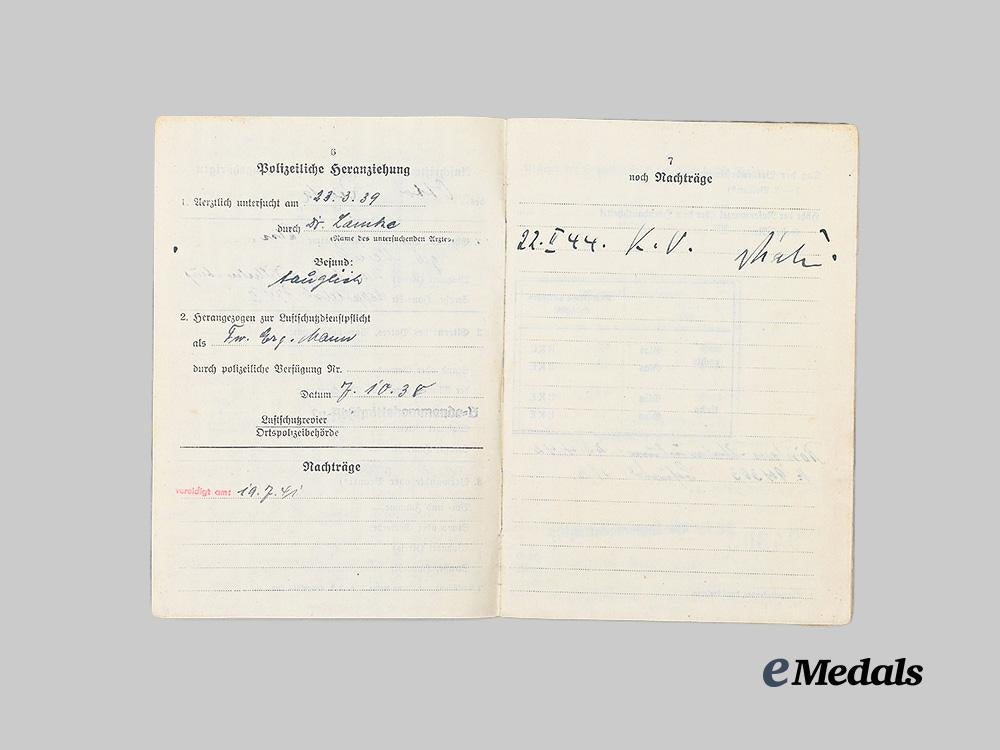 6
Polizeiliche Heranziehung
1. Aerztlich untersucht am 23.3.39
durch Dr.
(Name des untersuchenden Arztes)
Befund:
tauglich
2. Herangezogen zur Luftschutzdienstpflicht
als Fw. Erg. Mann
durch polizeiliche Verfügung Nr.
Datum 7.10.38
Luftschutzrevier
Ortspolizeibehörde
Nachträge
vereidigt am: 19.7.41
7
noch Nachträge
22.II 44. K.V.
eMedals